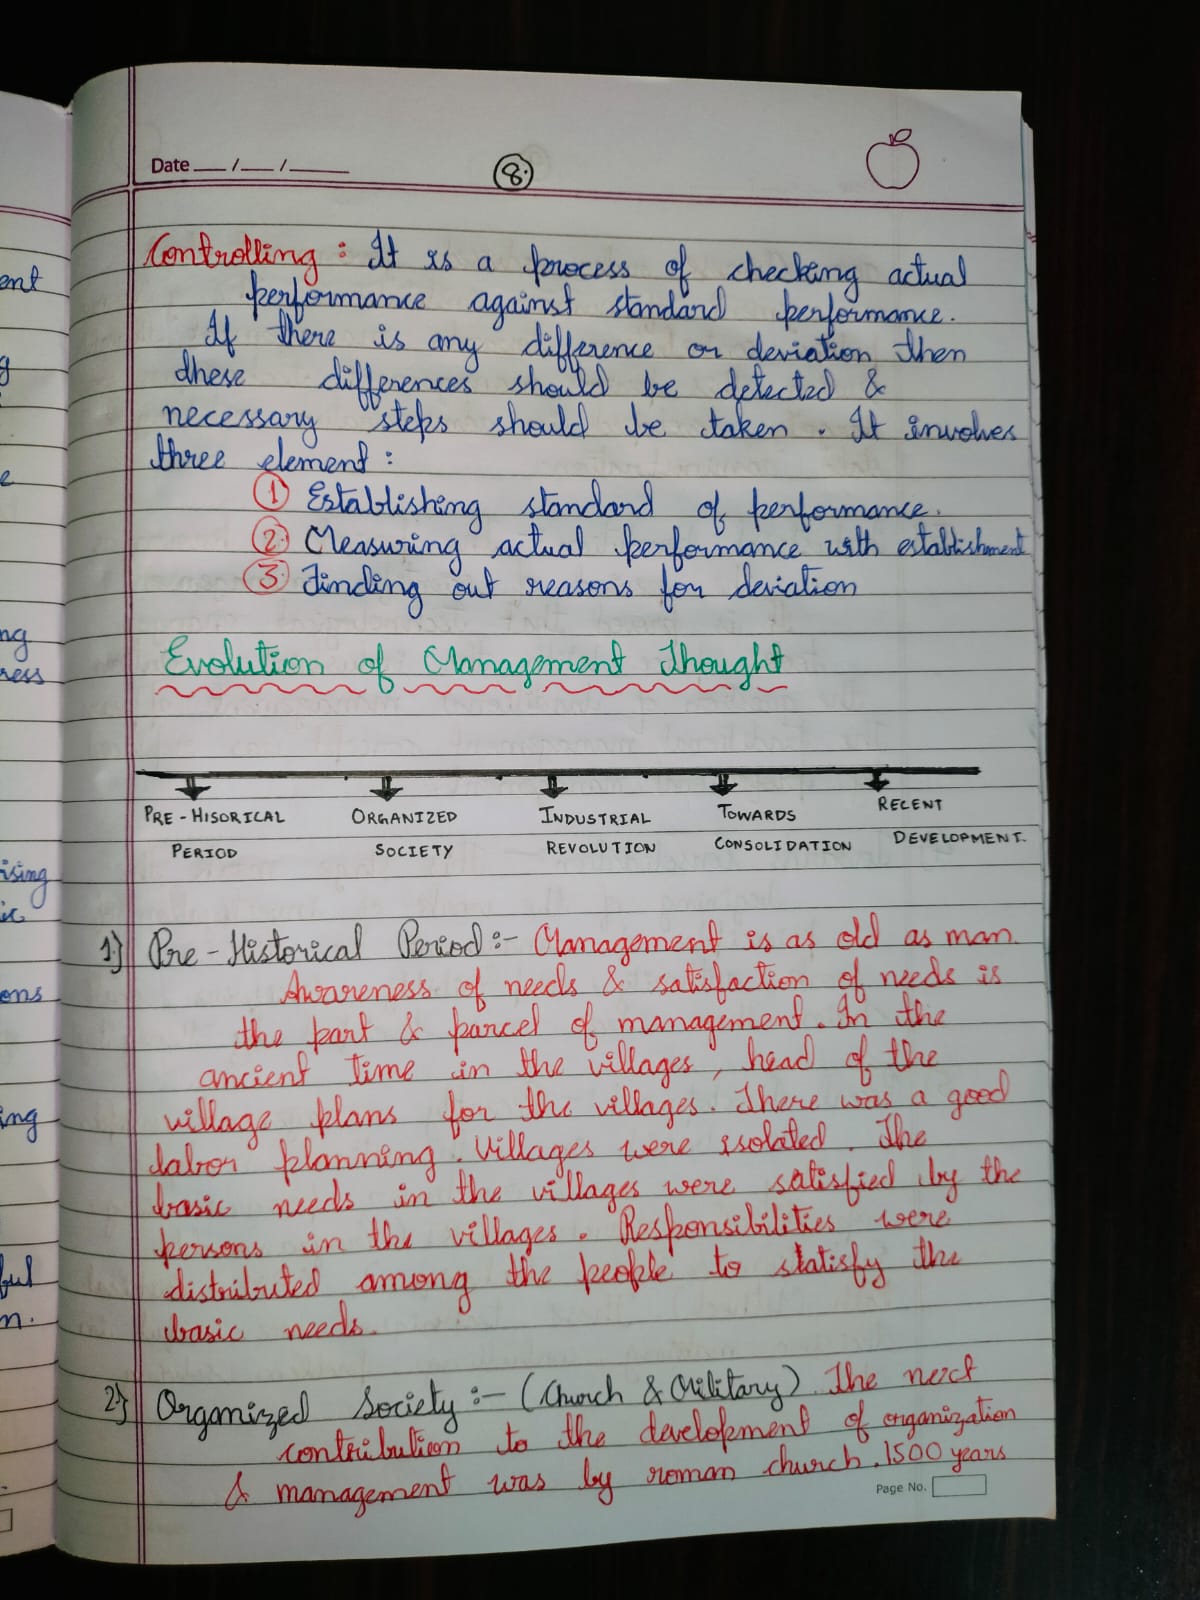 Date __/__/____
8.
Controlling : It is a process of checking actual
performance against standard performance.
If there is any difference or deviation then
these differences should be detected &
necessary steps should be taken. It involves
three element :
1 Establishing standard of performance.
2. Measuring actual performance with establishment
3. Finding out reasons for deviation
Evolution of Management Thought
PRE-HISORICAL PERIOD
ORGANIZED SOCIETY
INDUSTRIAL REVOLUTION
TOWARDS CONSOLIDATION
RECENT DEVELOPMENT.
1.) Pre-Historical Period :- Management is as old as man.
Awareness of needs & satisfaction of needs is
the part & parcel of management. In the
ancient time in the villages, head of the
village plans for the villages. There was a good
labor planning. Villages were isolated. The
basic needs in the villages were satisfied by the
persons in the villages. Responsibilities were
distributed among the people to statisfy the
basic needs.
2.) Organized Society :- (Church & Military). The next
contribution to the development of organization
& management was by roman church. 1500 years
Page No.
ent
g
e
ng
ress
ising
ic
ons
ing
ful
n.